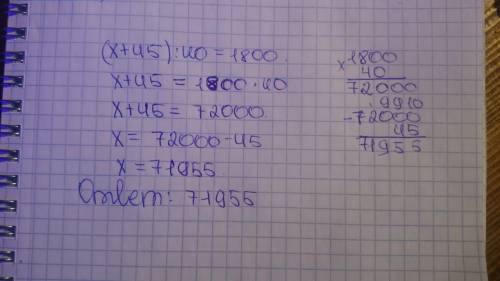 (x+45):40=1800
x+45=1800·40
x+45=72000
x=72000-45
x=71955
Ответ: 71955
x1800
40
72000
.9910
-72000
45
71955